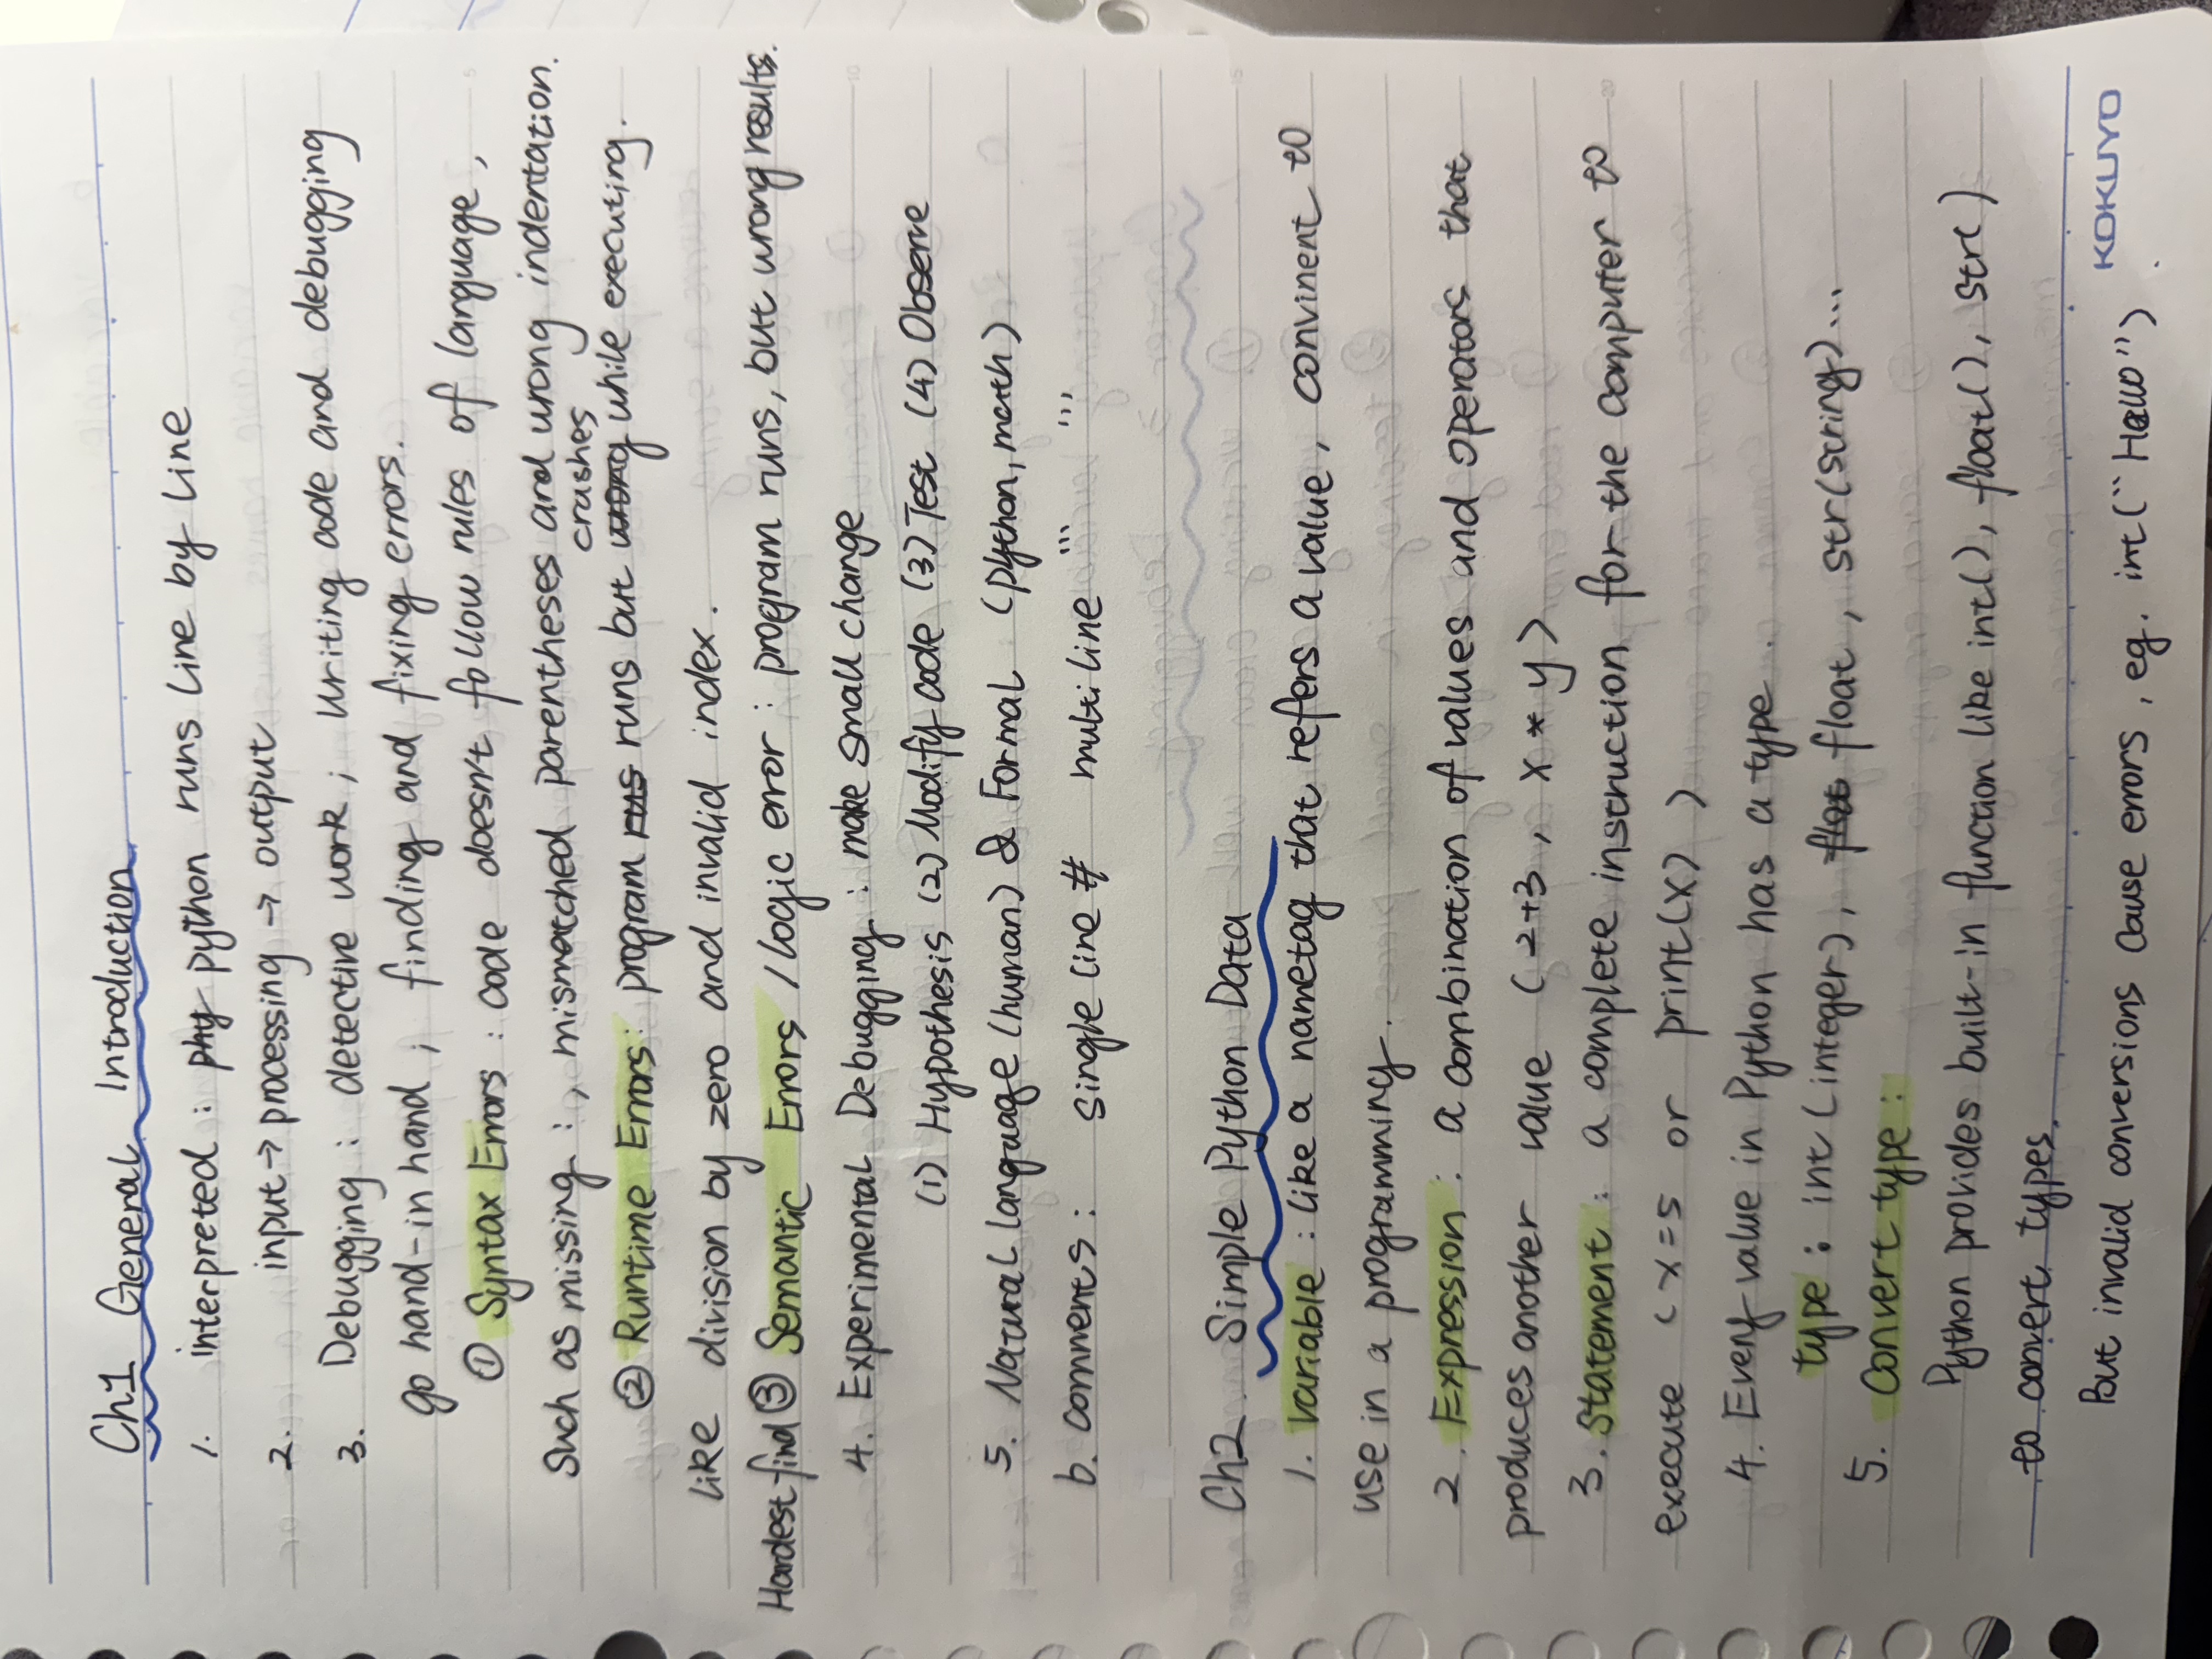 Ch1 General Introduction
1. interpreted : phy python runs line by line
2. input → processing → output
3. Debugging : detective work ; writing code and debugging
go hand-in hand ; finding and fixing errors.
① Syntax Errors : code doesn't follow rules of language ,
Such as missing : , mismatched parentheses and wrong indentation.
crashes
② Runtime Errors : program rus runs but wrong while executing.
like division by zero and invalid index .
Hardest find ③ Semantic Errors / logic error : program runs, but wrong results.
4. Experimental Debugging : make small change
(1) Hypothesis (2) Modify code (3) Test (4) Observe
5. Natural language (human) & Formal (python, math)
6. comments : single line # multi line ''' '''
Ch2 Simple Python Data
1. variable : like a nametag that refers a value , convinent to
use in a programming .
2. Expression : a combination of values and operators that
produces another value ( 2+3 , x * y )
3. Statement : a complete instruction for the computer to
execute ( x = 5 or print(x) )
4. Every value in Python has a type .
type : int (integer), flot float , str (string) ...
5. Convert type :
Python provides built-in function like int(), float(), str()
to convert types.
But invalid conversions cause errors , eg. int("Hello") .
KOKUYO